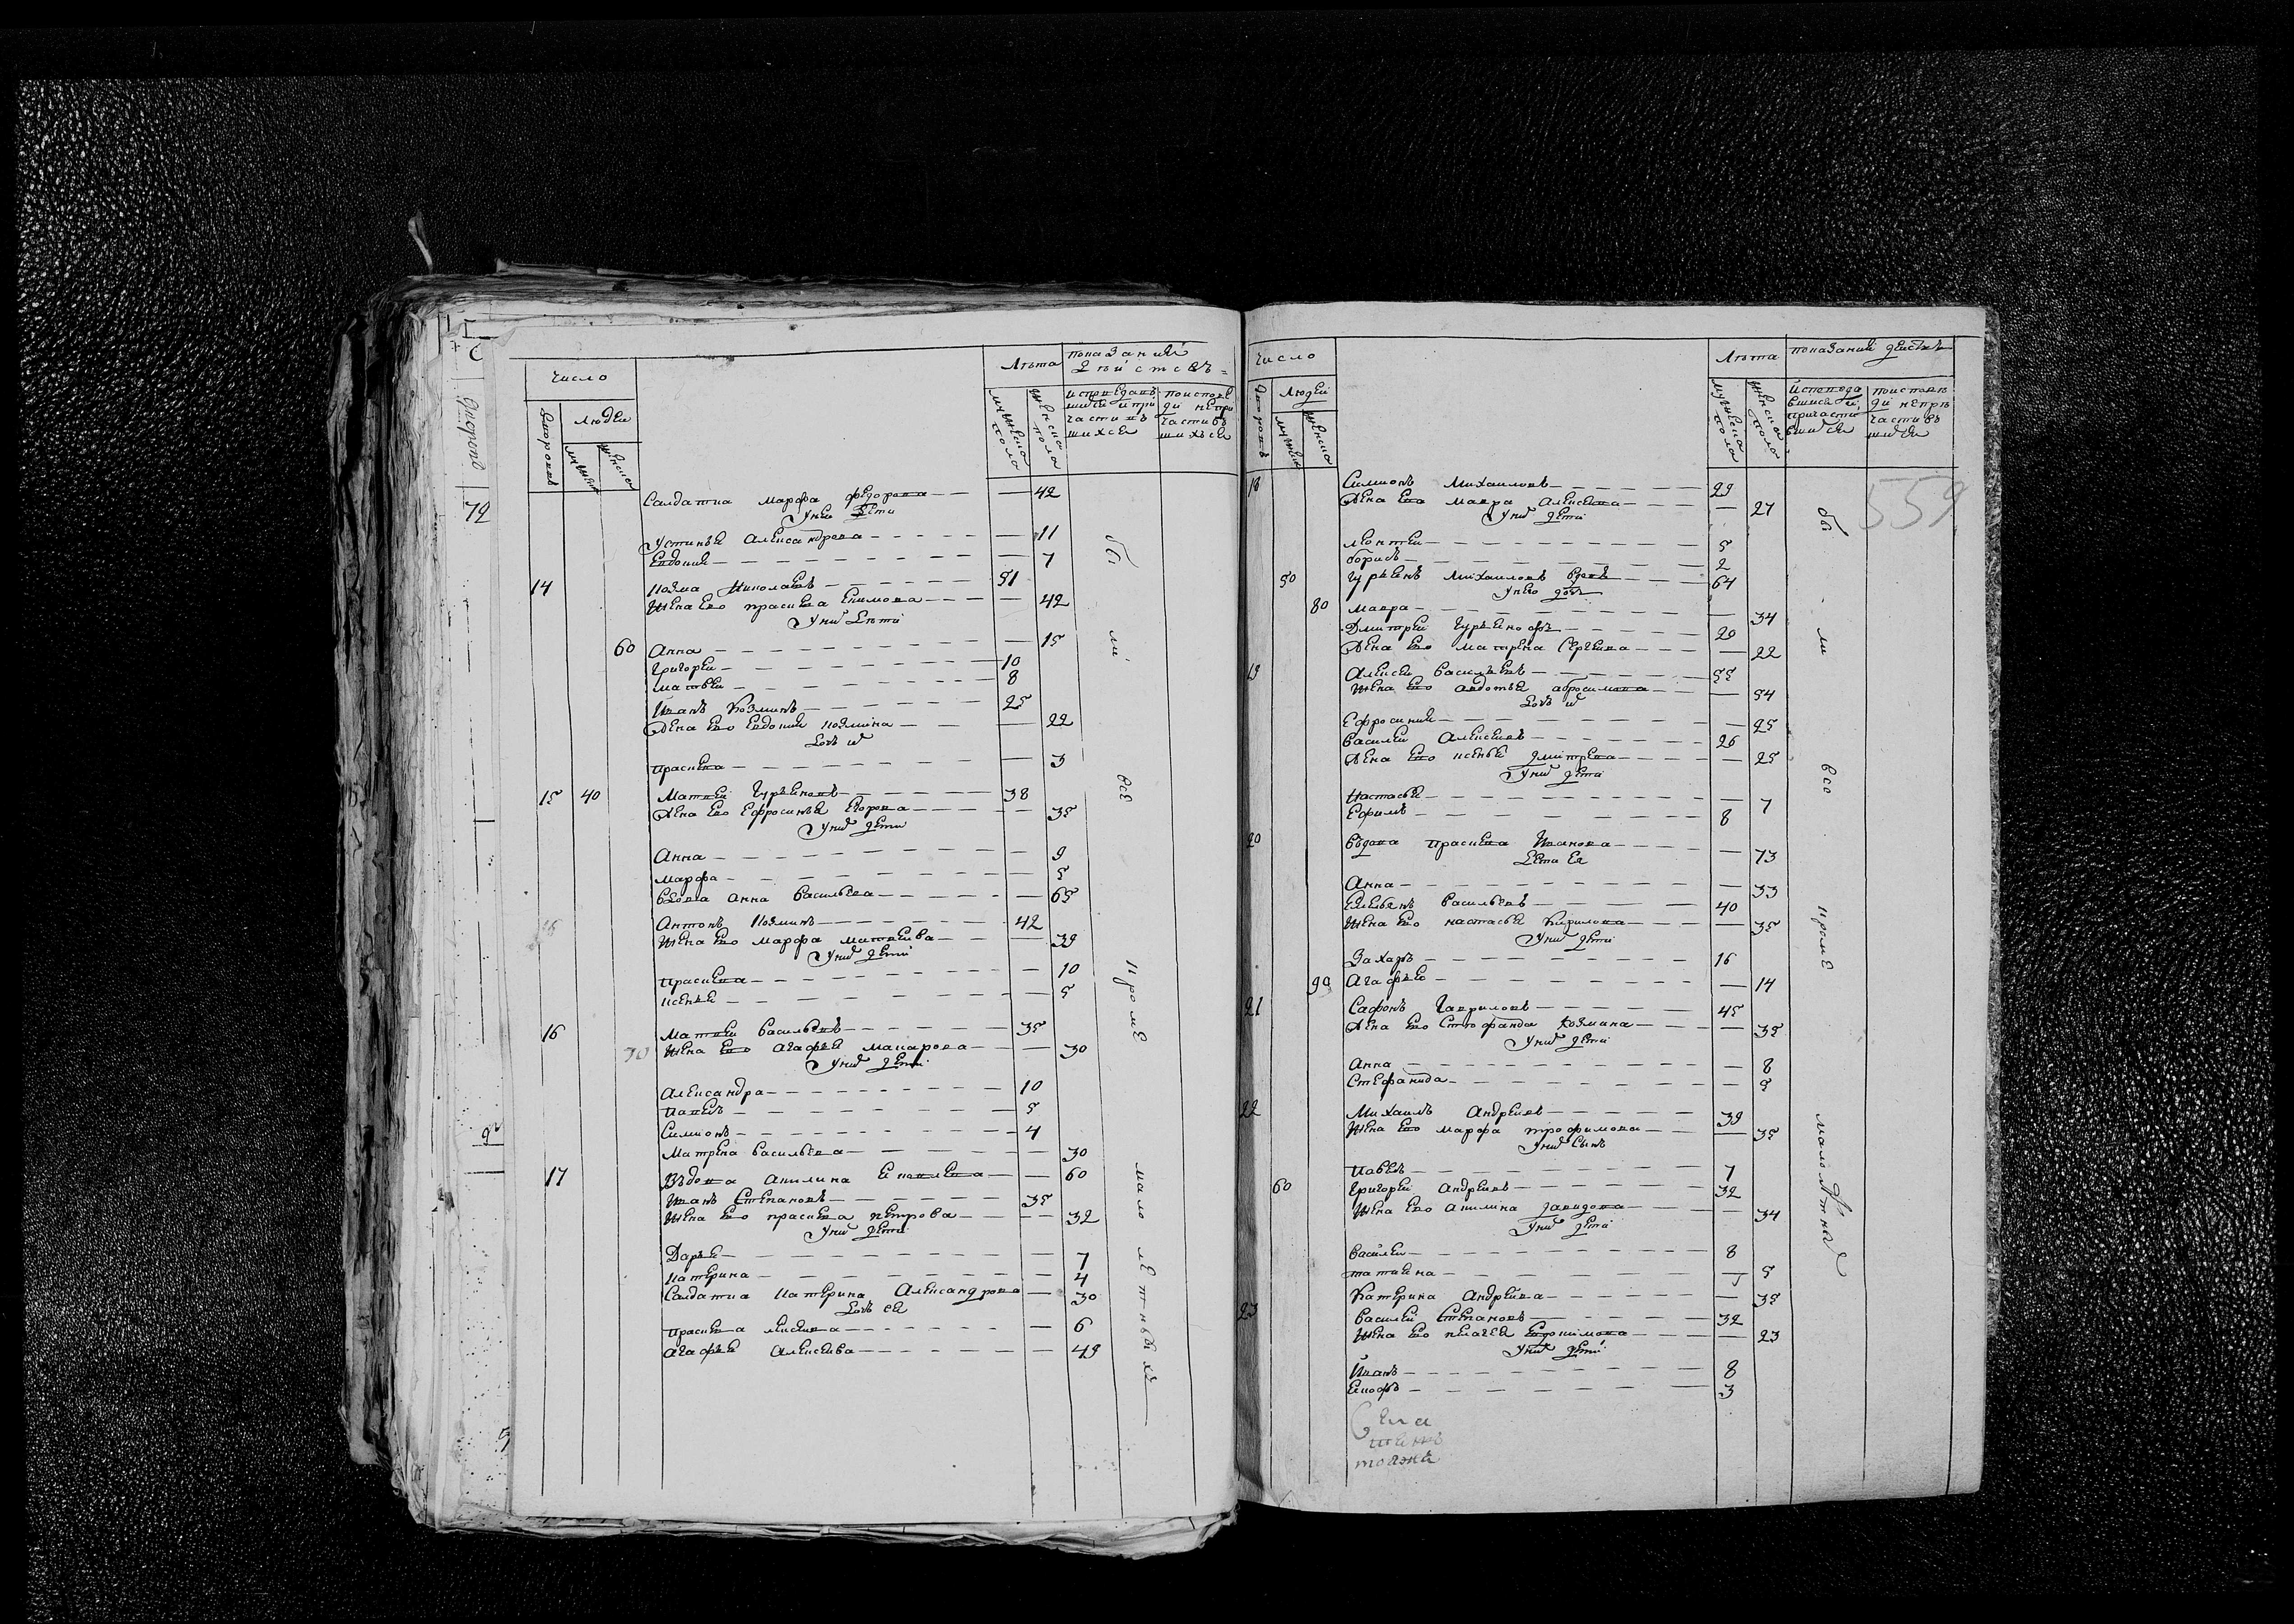 Число
Лѣта
показаний
дѣйствъ
дворовъ
людей
мужска
женска
мужеска пола
женска пола
исповедав
шихся и при
частивъ
шихся
по испове
ди непри
частивъ
шихся
Салдатка марфа федорова 42
У нея дети
Устинья Александрова 11
Евдокия 7
14 Козма Николаевъ 51
Жена ево прасковья Екимова 42
У них дети
60 Анна 15
Григорей 10
матвей 8
Иванъ Козминъ 25
Жена ево Евдокия козмина 22
Дочь их
прасковья 3
15 40 Матвей Гурьяновъ 38
Жена ево Ефросинья Егорова 35
У них дети
Анна 9
марфа 5
Вдова анна Васильева 65
Антонъ Козминъ 42
Жена ево марфа матвеева 39
У них дети
прасковья 10
ксенья 5
16 Матвей Васильевъ 35
70 Жена ево агафья макарова 30
У них дети
Александра 10
Павелъ 5
Симионъ 4
Матрена Васильева 30
17 Въдова Акилина 60
Иванъ Степановъ 35
Жена ево прасковья петрова 32
У них дети
Дарья 7
Катерина 4
Салдатка Катерина Александрова 30
Дочь ея
прасковья 6
агафья Алексеева 49
бы ли все кроме мало летныхъ
Число
Лѣта
показаний действъ
дворовъ
людей
мужска
женска
мужеска пола
женска пола
исповеда
вшихся и
причасти
вшихся
по испове
ди непри
частивъ
шихся
559
18 Симионъ Михаиловъ 29
Жена ево мавра Алексеева 27
У них дети
леонтей 5
борисъ 2
50 Гурьянъ Михаиловъ вдовъ 64
У нево дочь
80 мавра 34
Дмитрей Гурьяновъ 20
Жена ево матрена Сергеева 22
19 Алексей Васильевъ 55
Жена ево авдотья абросимова 54
Дочь их
Ефросиния 25
Василей Алексеевъ 26
Жена ево ксенья дмитрева 25
У них дети
Настасья 7
Ефимъ 8
20 Въдова прасковья Иванова 73
Дети Ея
Анна 33
Емельянъ Васильевъ 40
Жена ево настасья Кирилова 35
У них дети
Захаръ 16
90 Агафья 14
21 Сафонъ Гавриловъ 45
Жена ево козмина 35
У них дети
Анна 8
Стефанида 5
22 Михаилъ Андреевъ 39
Жена ево марфа трофимова 35
У них сынъ
Павелъ 7
60 Григорей Андреевъ 32
Жена ево акилина давидова 34
У них дети
Василей 8
татияна 5
Катерина Андреева 35
23 Василей Степановъ 32
Жена ево пелагея 23
У них дети
Иванъ 8
3
бы ли все кроме малолѣтных